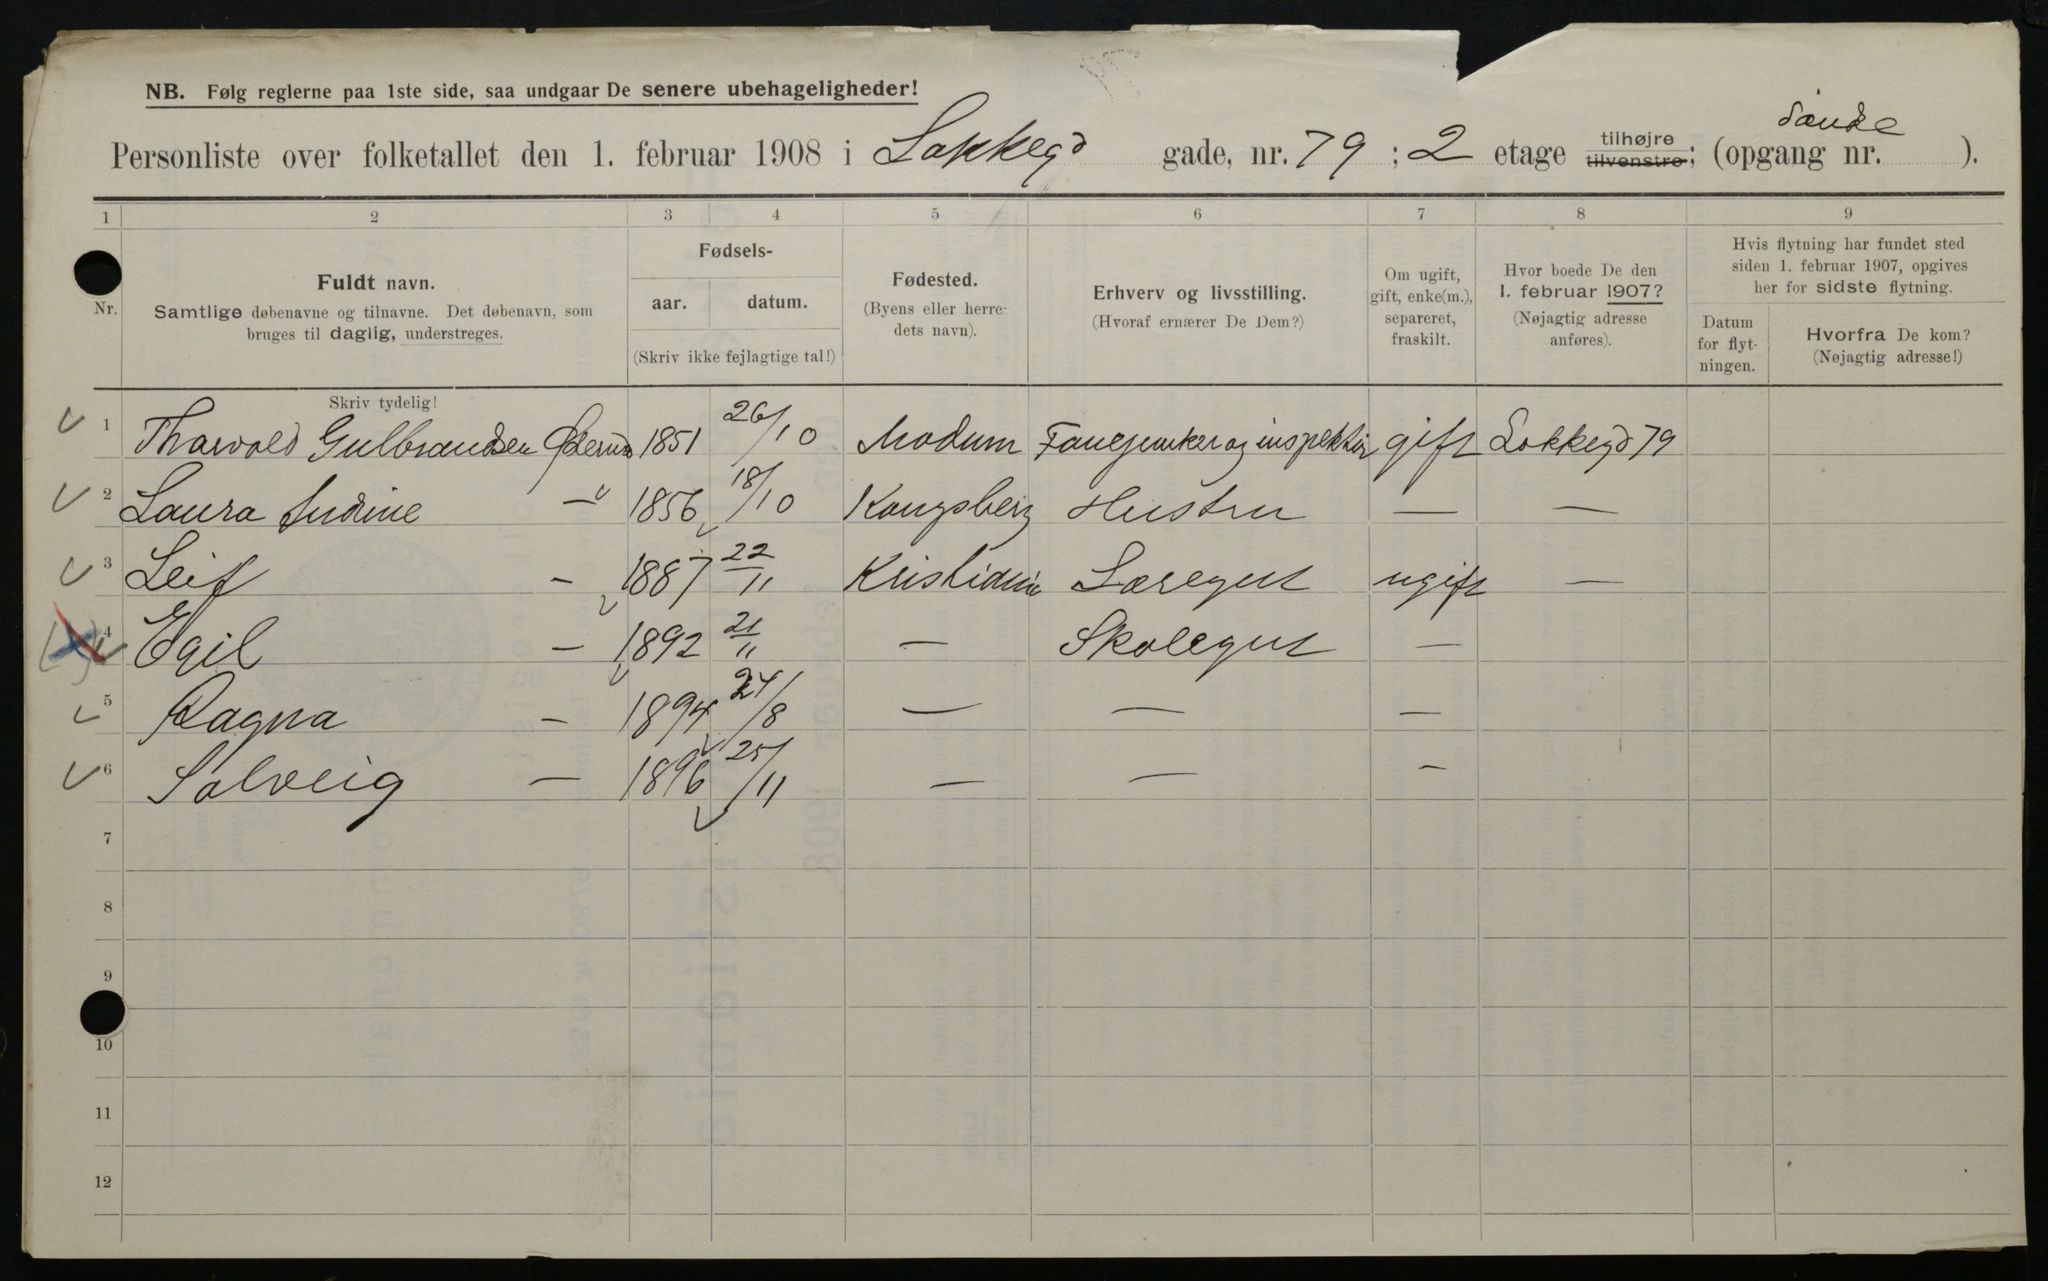 NB. Følg reglerne paa 1ste side, saa undgaar De senere ubehageligheder!
Personliste over folketallet den 1. februar 1908 i Lakkegd gade, nr. 79 ; 2 etage tilhøjre tilvenstre; (opgang nr. ).
1 2 3 4 5 6 7 8 9
Nr.
Fuldt navn.
Samtlige døbenavne og tilnavne. Det døbenavn, som
bruges til daglig, understreges.
Fødsels-
aar. datum.
(Skriv ikke fejlagtige tal!)
Fødested.
(Byens eller herre-
dets navn).
Erhverv og livsstilling.
(Hvoraf ernærer De Dem?)
Om ugift,
gift, enke(m.),
separeret,
fraskilt.
Hvor boede De den
1. februar 1907?
(Nøjagtig adresse
anføres).
Hvis flytning har fundet sted
siden 1. februar 1907, opgives
her for sidste flytning.
Datum
for flyt-
ningen.
Hvorfra De kom?
(Nøjagtig adresse!)
Skriv tydelig!
1 Thorvald Gulbrandsen 1851 26/10 Modum Fanejunker og inspektør gift Lakkegd 79
2 Laura — " 1856 18/10 Kongsberg Hustru — —
3 Leif — 1887 22/11 Kristiania Læregut ugift —
4 Egil — 1892 21/11 — Skolegut —
5 Ragna — 1894 24/8 — — —
6 Solveig — 1896 25/11 — — —
7
8
9
10
11
12